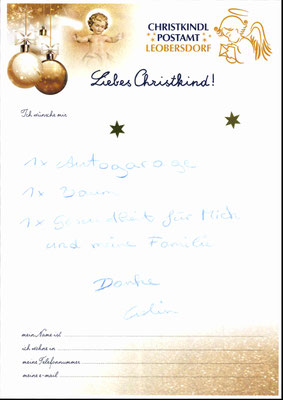 CHRISTKINDL
POSTAMT
LEOBERSDORF
Liebes Christkind!
Ich wünsche mir
1x Autogarage
1x
1x Gesundheit für Mich
und meine Familie
Danke
mein Name ist
ich wohne in
meine Telefonnummer
meine e-mail